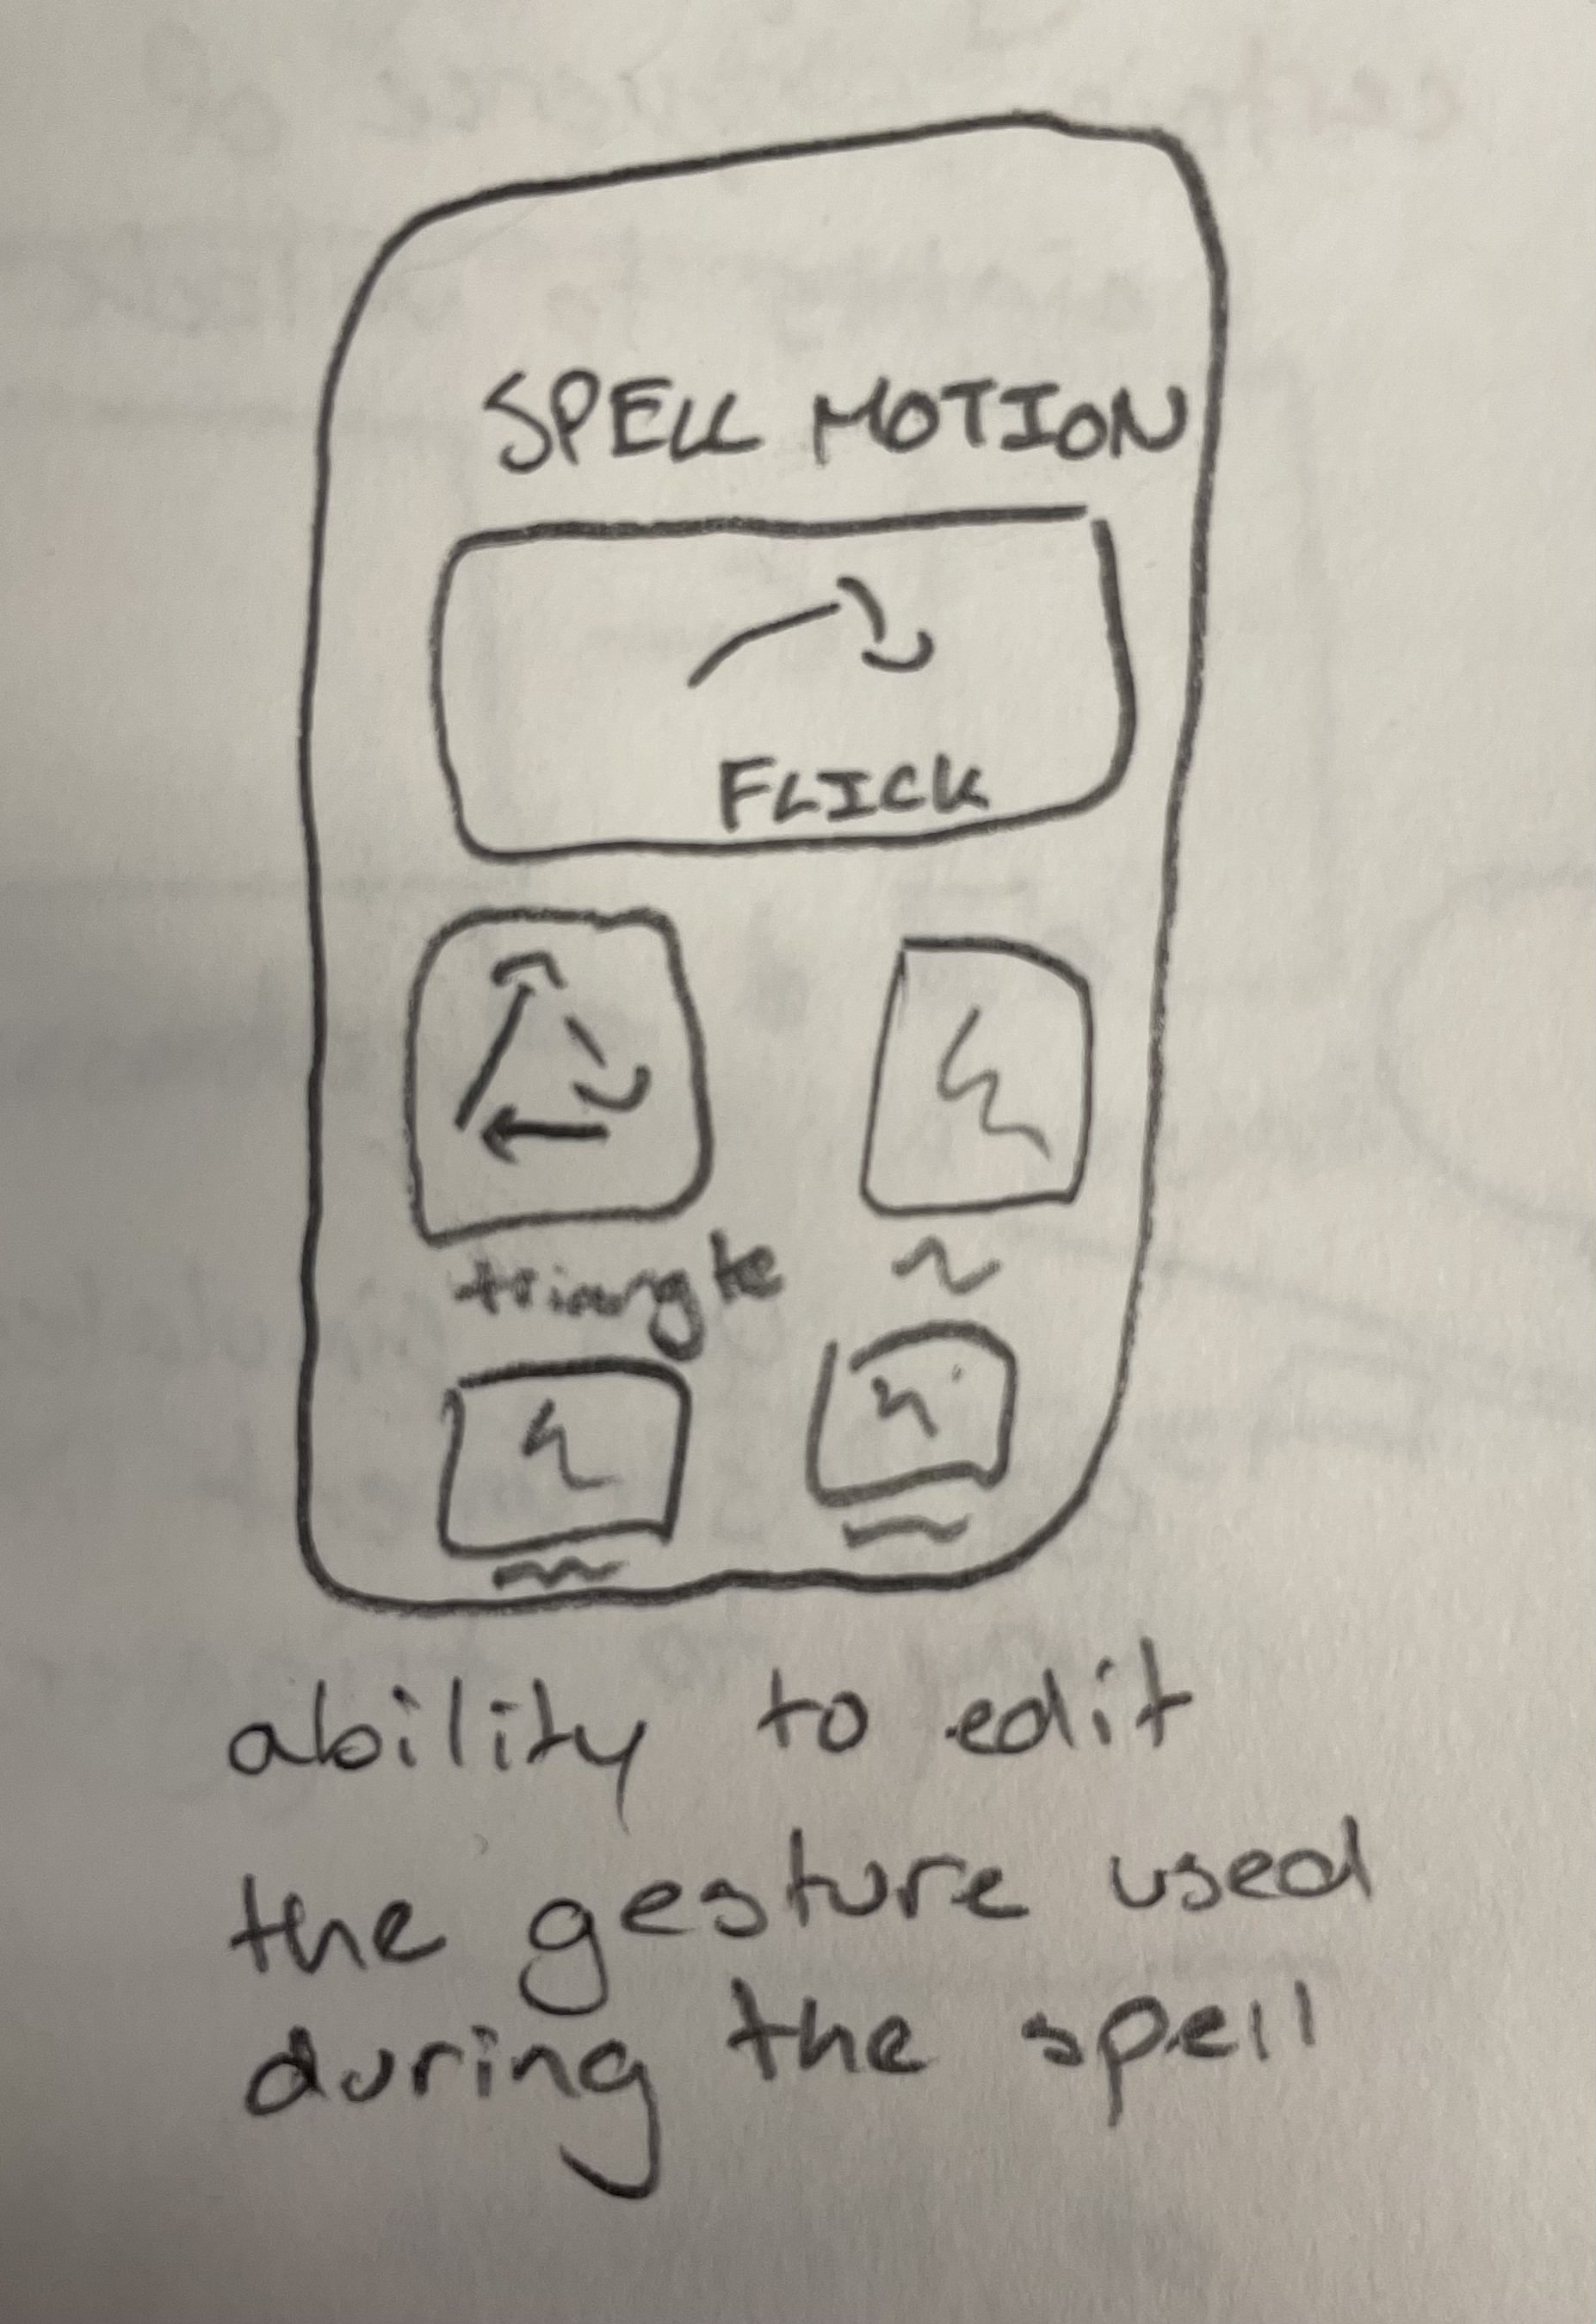 SPELL MOTION
FLICK
triangle
ability to edit
the gesture used
during the spell